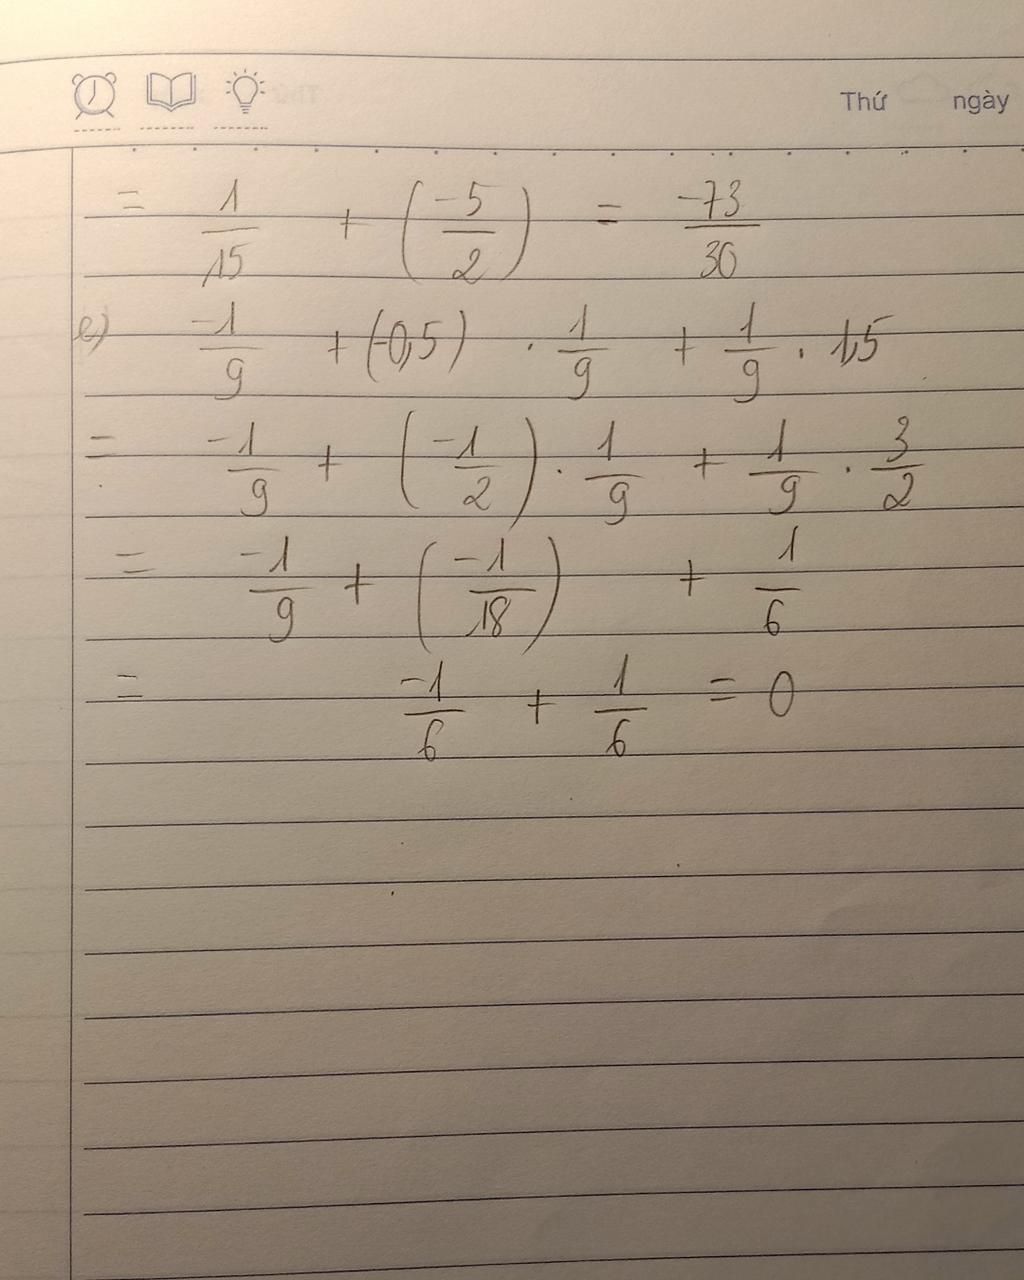 Thứ ngày
= 1/15 + (-5/2) = -73/30
e) -1/9 + (-0,5) . 1/9 + 1/9 . 1,5
= -1/9 + (-1/2) . 1/9 + 1/9 . 3/2
= -1/9 + (-1/18) + 1/6
= -1/6 + 1/6 = 0